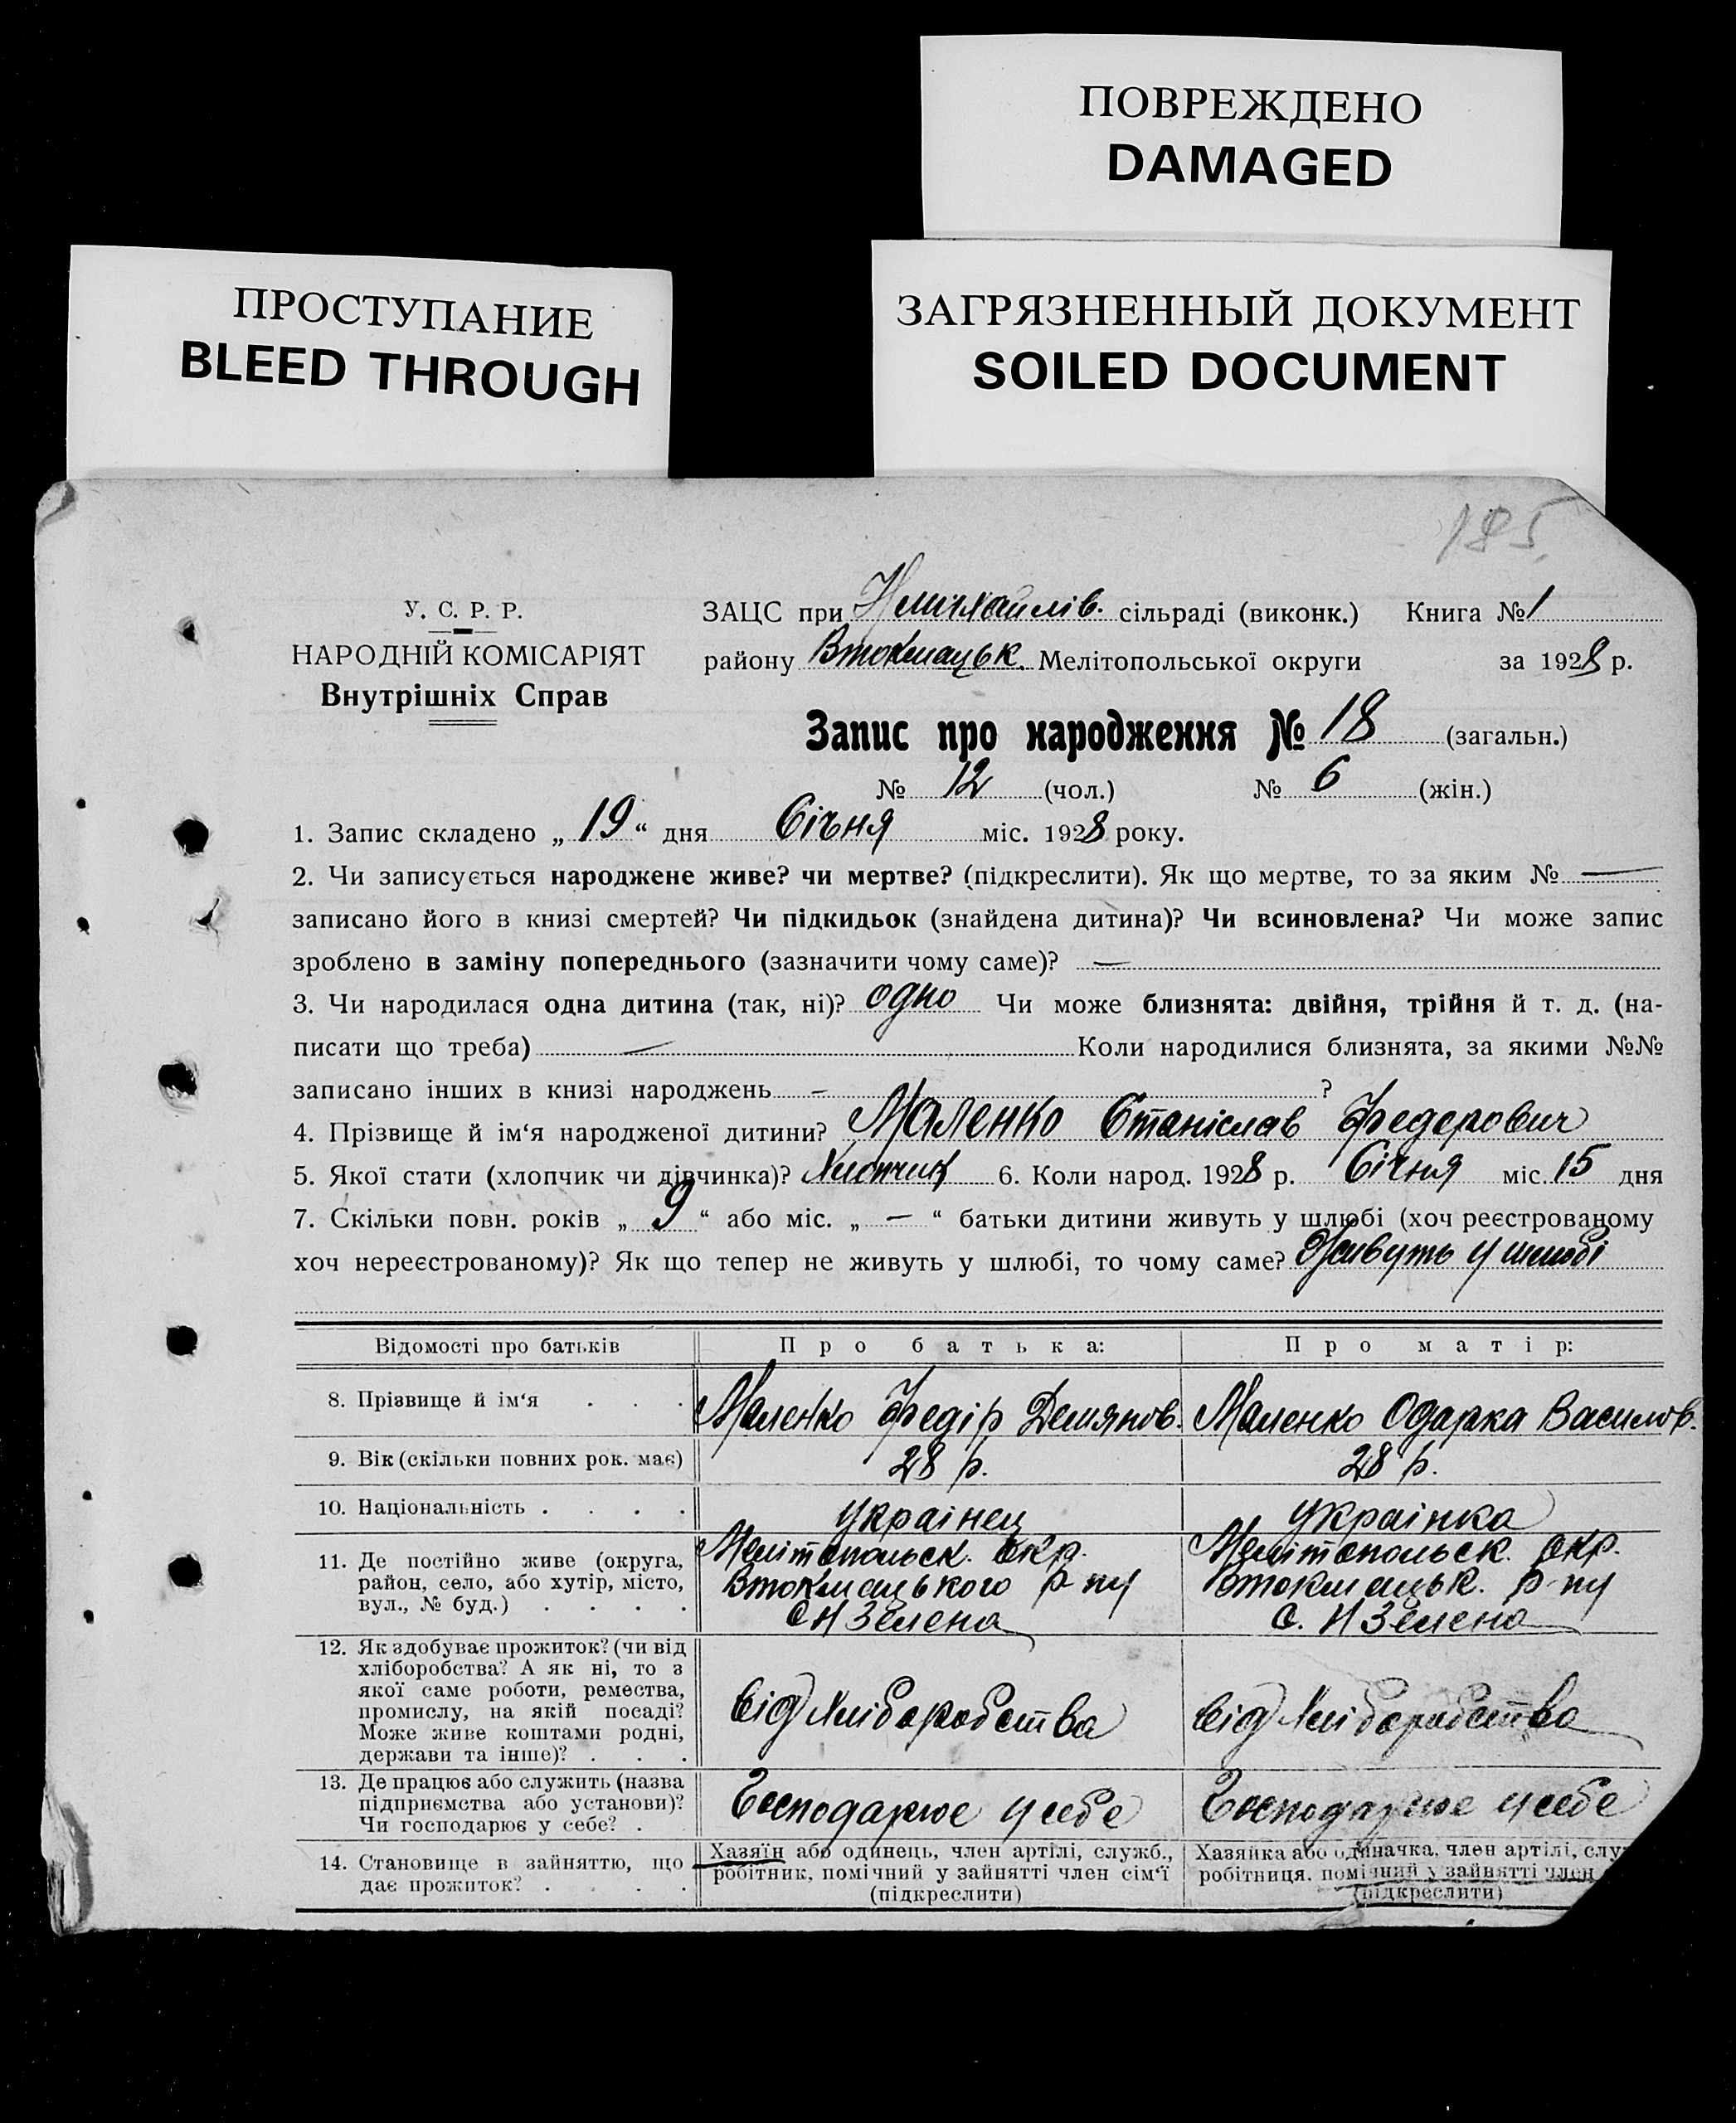 ПОВРЕЖДЕНО
DAMAGED
ПРОСТУПАНИЕ
BLEED THROUGH
ЗАГРЯЗНЕННЫЙ ДОКУМЕНТ
SOILED DOCUMENT
185.
У. С. Р. Р.
НАРОДНІЙ КОМІСАРІЯТ
Внутрішніх Справ
ЗАЦС при Нмихайлів. сільраді (виконк.) Книга № 1
району Втокмацьк. Мелітопольської округи за 1928 р.
Запис про народження № 18 (загальн.)
№ 12 (чол.) № 6 (жін.)
1. Запис складено „ 19 “ дня Січня міс. 1928 року.
2. Чи записується народжене живе? чи мертве? (підкреслити). Як що мертве, то за яким № —
записано його в книзі смертей? Чи підкидьок (знайдена дитина)? Чи всиновлена? Чи може запис
зроблено в заміну попереднього (зазначити чому саме)? —
3. Чи народилася одна дитина (так, ні)? одно Чи може близнята: двійня, трійня й т. д. (на-
писати що треба) — Коли народилися близнята, за якими №№
записано інших в книзі народжень — ?
4. Прізвище й ім‘я народженої дитини? Маленко Станіслав Федерович
5. Якої стати (хлопчик чи дівчинка)? Хлопчик 6. Коли народ. 1928 р. Січня міс. 15 дня
7. Скільки повн. років „ 9 “ або міс. „ — “ батьки дитини живуть у шлюбі (хоч реєстрованому
хоч нереєстрованому)? Як що тепер не живуть у шлюбі, то чому саме? Живуть у шлюбі
Відомості про батьків Про батька: Про матір:
8. Прізвище й ім‘я . . . Маленко Федір Демянов. Маленко Одарка Василов.
9. Вік (скільки повних рок. має) 28 р. 28 р.
10. Національність . . . . українец українка
11. Де постійно живе (округа,
район, село, або хутір, місто,
вул., № буд.) . . . .
Мелітопольськ. окр.
Втокмацького р-ну
с Н Зелена
Мелітопольськ. окр.
Втокмацьк. р-ну
с. Н Зелена
12. Як здобуває прожиток? (чи від
хліборобства? А як ні, то з
якої саме роботи, ремества,
промислу, на якій посаді?
Може живе коштами родні,
держави та інше)? . . .
від хліборобства
від хліборобства
13. Де працює або служить (назва
підприємства або установи)?
Чи господарює у себе? .
Господарює у себе
Господарює у себе
14. Становище в зайняттю, що
дає прожиток? . . . .
Хазяїн або одинець, член артілі, служб.,
робітник, помічний у зайнятті член сім‘ї
(підкреслити)
Хазяйка або одиначка, член артілі, служ
робітниця, помічний у зайнятті член
(підкреслити)